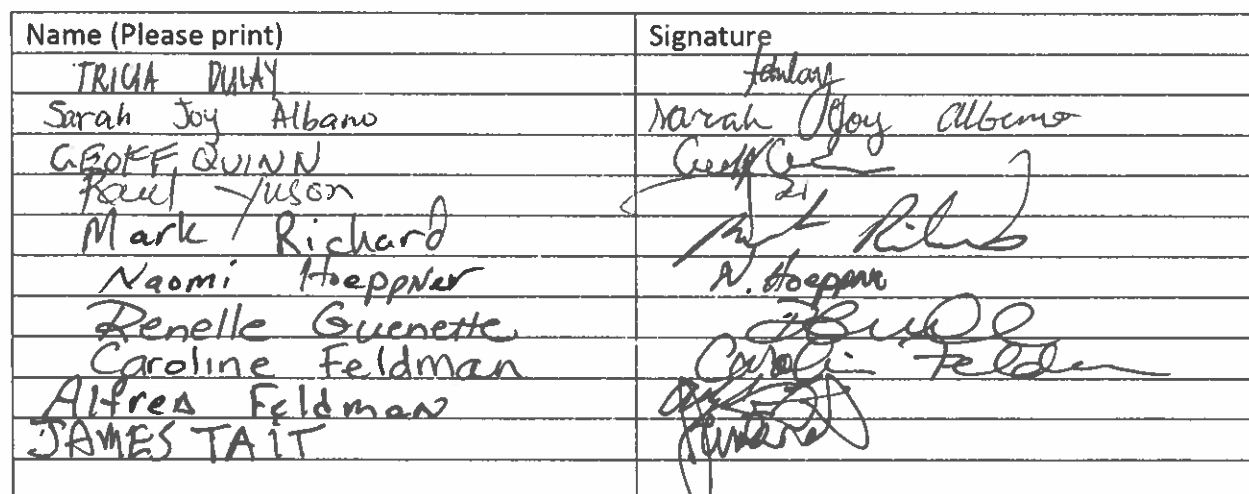 Name (Please print) Signature
TRICIA DULAY tdulay
Sarah Joy Albano Sarah Joy Albano
GEOFF QUINN
Raul Yuson
Mark Richard
Naomi Hoeppner N. Hoeppner
Renelle Guenette
Caroline Feldman Carolin Felden
Alfred Feldman
JAMES TAIT